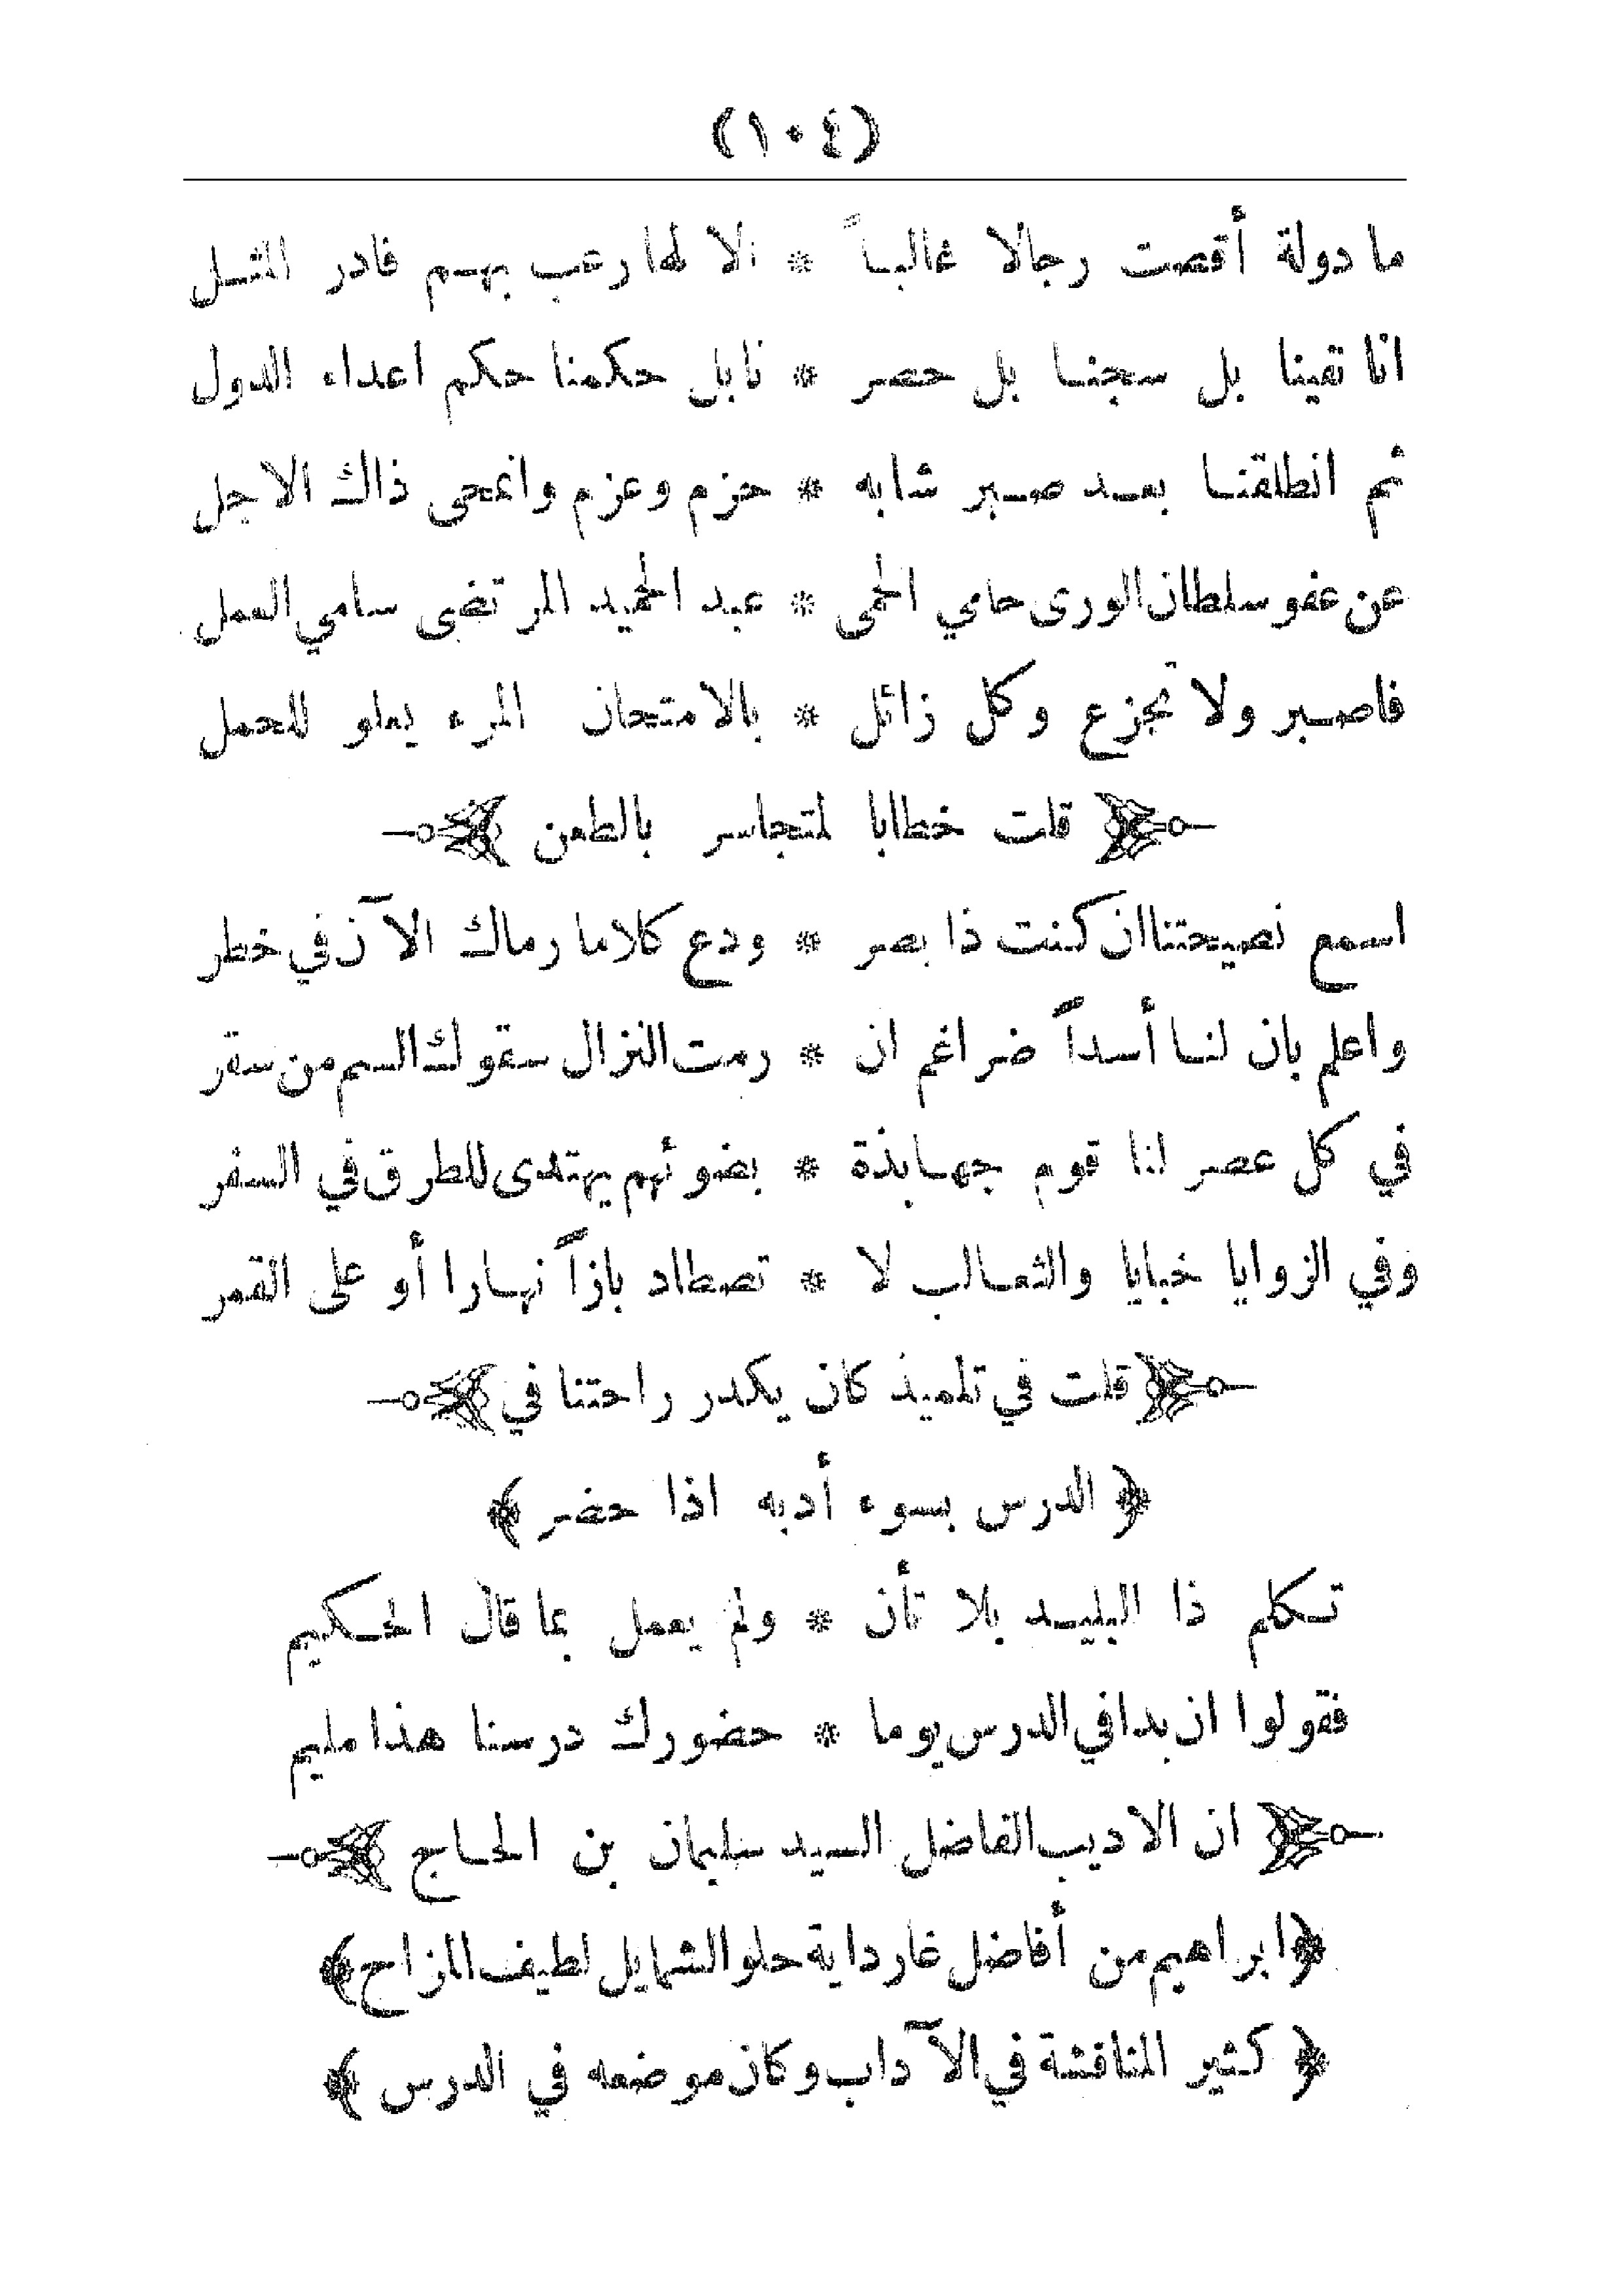 (١٠٤)
ما دولة أقصت رجالا غالباً * الا لها رعب بهم فادر المثل
انا نفينا بل سجنا بل حصر * نا بل حكمنا حكم اعداء الدول
ثم انطلقنا بعد صبر شابه * حزم وعزم وانمحى ذاك الاجل
عن عفو سلطان الورى حامي الحمى * عبد الحميد المرتضى سامي العمل
فاصبر ولا تجزع وكل زائل * بالامتحان المرء يعلو للحمل
﴿ قلت خطابا لمتجاسر بالطعن ﴾
اسمع نصيحتنا ان كنت ذا بصر * ودع كلاما رماك الآن في خطر
واعلم بان لنا أسداً ضراغم ان * رمت النزال سقوك السم من سقر
في كل عصر لنا قوم جهابذة * بضوئهم يهتدى للطرق في السفر
وفي الزوايا خبايا والثعالب لا * تصطاد بازاً نهارا أو على القمر
﴿ قلت في تلميذ كان يكدر راحتنا في ﴾
﴿ الدرس بسوء أدبه اذا حضر ﴾
تكلم ذا البليد بلا تأن * ولم يعمل بما قال الحكيم
فقولوا ان بدا في الدرس يوما * حضورك درسنا هذا مليم
﴿ ان الاديب الفاضل السيد سليمان بن الحاج ﴾
﴿ ابراهيم من أفاضل غارداية حلو الشمايل لطيف المزاح ﴾
﴿ كثير المناقشة في الآداب وكان موضعه في الدرس ﴾